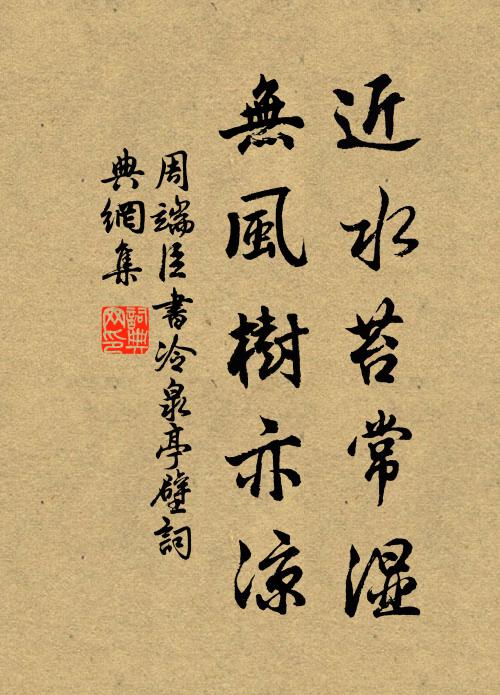 近水苔常湿
無風樹亦凉
周端臣書冷泉亭壁詞
典網集
詞典
网印